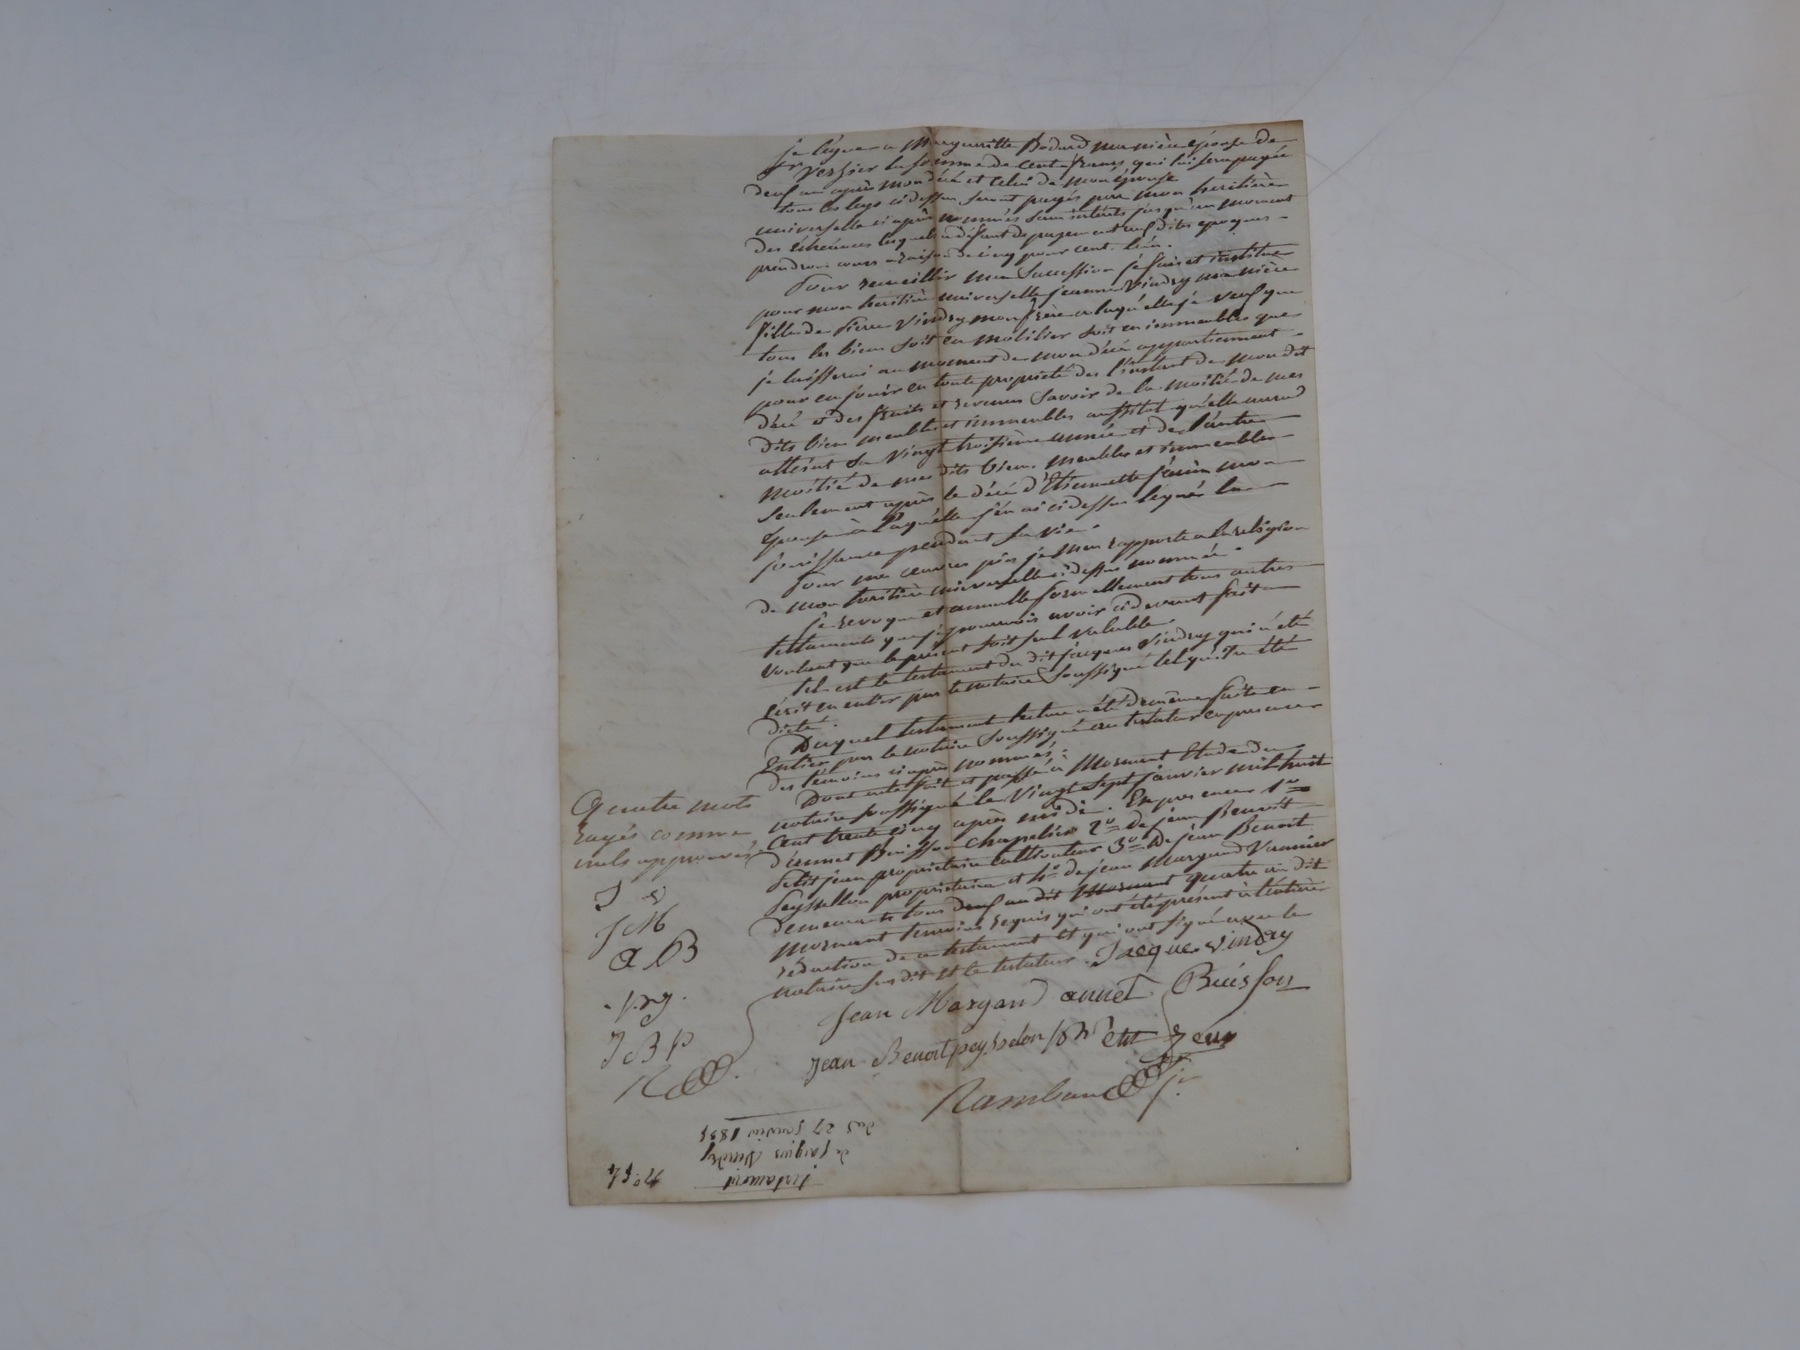 je lègue a Margueritte Bodard ma nièce épouse de
Jr Verssier la somme de cent francs qui lui sera payée
deux ans après mon décé et celui de mon épouse
tous les legs ci dessus seront payés par mon heritière
universelle ci après nommée sans interets jusqu'au moment
des échéances lesquels a défaut de payement aux dites epoques
prendront cours a raison de cinq pour cent l'an.
Pour recueillir ma succession je fais et institue
pour mon heritière universelle jeanne Vindry ma nièce
fille de Pierre Vindry mon frère a laquelle je veux que
tous les biens soit en mobilier soit en immeubles que
je laisserai au moment de mon décé appartiennent
pour en jouir en toute propriété des l'instant de mon dit
décé et des fruits et revenus savoir de la moitié de mes
dits biens meubles et immeubles aussitot qu'elle aura
atteint sa vingt troisième année et de l'autre
moitié de mes dits biens meubles et immeubles
seulement après le décé d'Etiennette mon
épouse à laquelle j'en ai ci dessus légué la
jouissance pendant sa vie.
Pour mes œuvres pies je m'en rapporte a la religion
de mon heritière universelle ci dessus nommée.
Je revoque et annulle formellement tous autres
testaments que je pourrois avoir ci devant fait
voulant que le présent soit seul valable.
tel est le testament du dit jacques Vindry qui a été
écrit en entier par le notaire soussigné tel qu'il a été
dicté.
Duquel testament lecture a été de même faite en
entier par le notaire soussigné au testateur en presence
des témoins ci après nommés.
Dont acte fait et passé à Mornant Etude du
notaire soussigné le Vingt sept janvier mil huit
cent trente cinq après midi. En presence 1o
d'annet Buisson chapelier 2o de jean Benoit
Petit jean propriétaire cultivateur 3o de jean Benoit
Peysselon propriétaire et 4o de jean Margand Vannier
demeurants tous deux au dit Mornant quatre au dit
Mornant temoins requis qui ont été présent à l'entière
rédaction de ce testament et qui ont signé avec le
notaire susdit et le testateur. Jacque Vindry
Jean Margand annet Buisson
Jean Benoit peysselon
Rambaud jr
Quatre mots
rayés comme
nuls approuvés
J V
J M
a B
J B P
R
No 54
testament
de jacques Vindry
du 27 janvier 1835